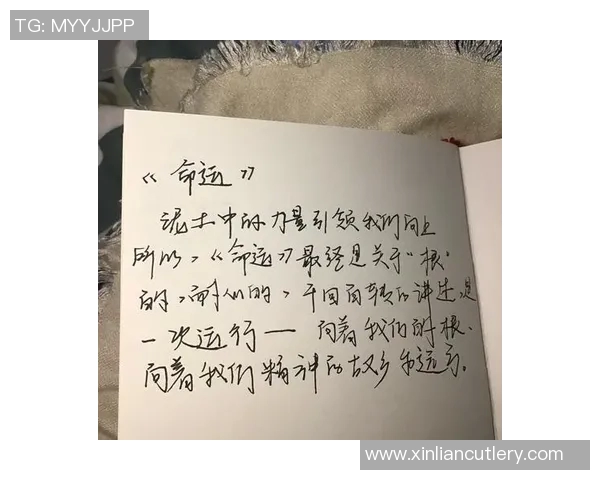 TG: MYYJJPP
《命运》
泥土中的力量引领我们向上
所以，《命运》最终是关于“根”
的，耐人的，千回百转的讲述，是
一次远行— 向着我们的根、
向着我们精神的故乡的远行。
www.xinliancutlery.com